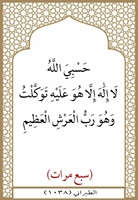 حَسْبِيَ اللَّهُ
لَا إِلَٰهَ إِلَّا هُوَ عَلَيْهِ تَوَكَّلْتُ
وَهُوَ رَبُّ الْعَرْشِ الْعَظِيمِ
(سبع مرات)
الطبراني (١٠٣٨)